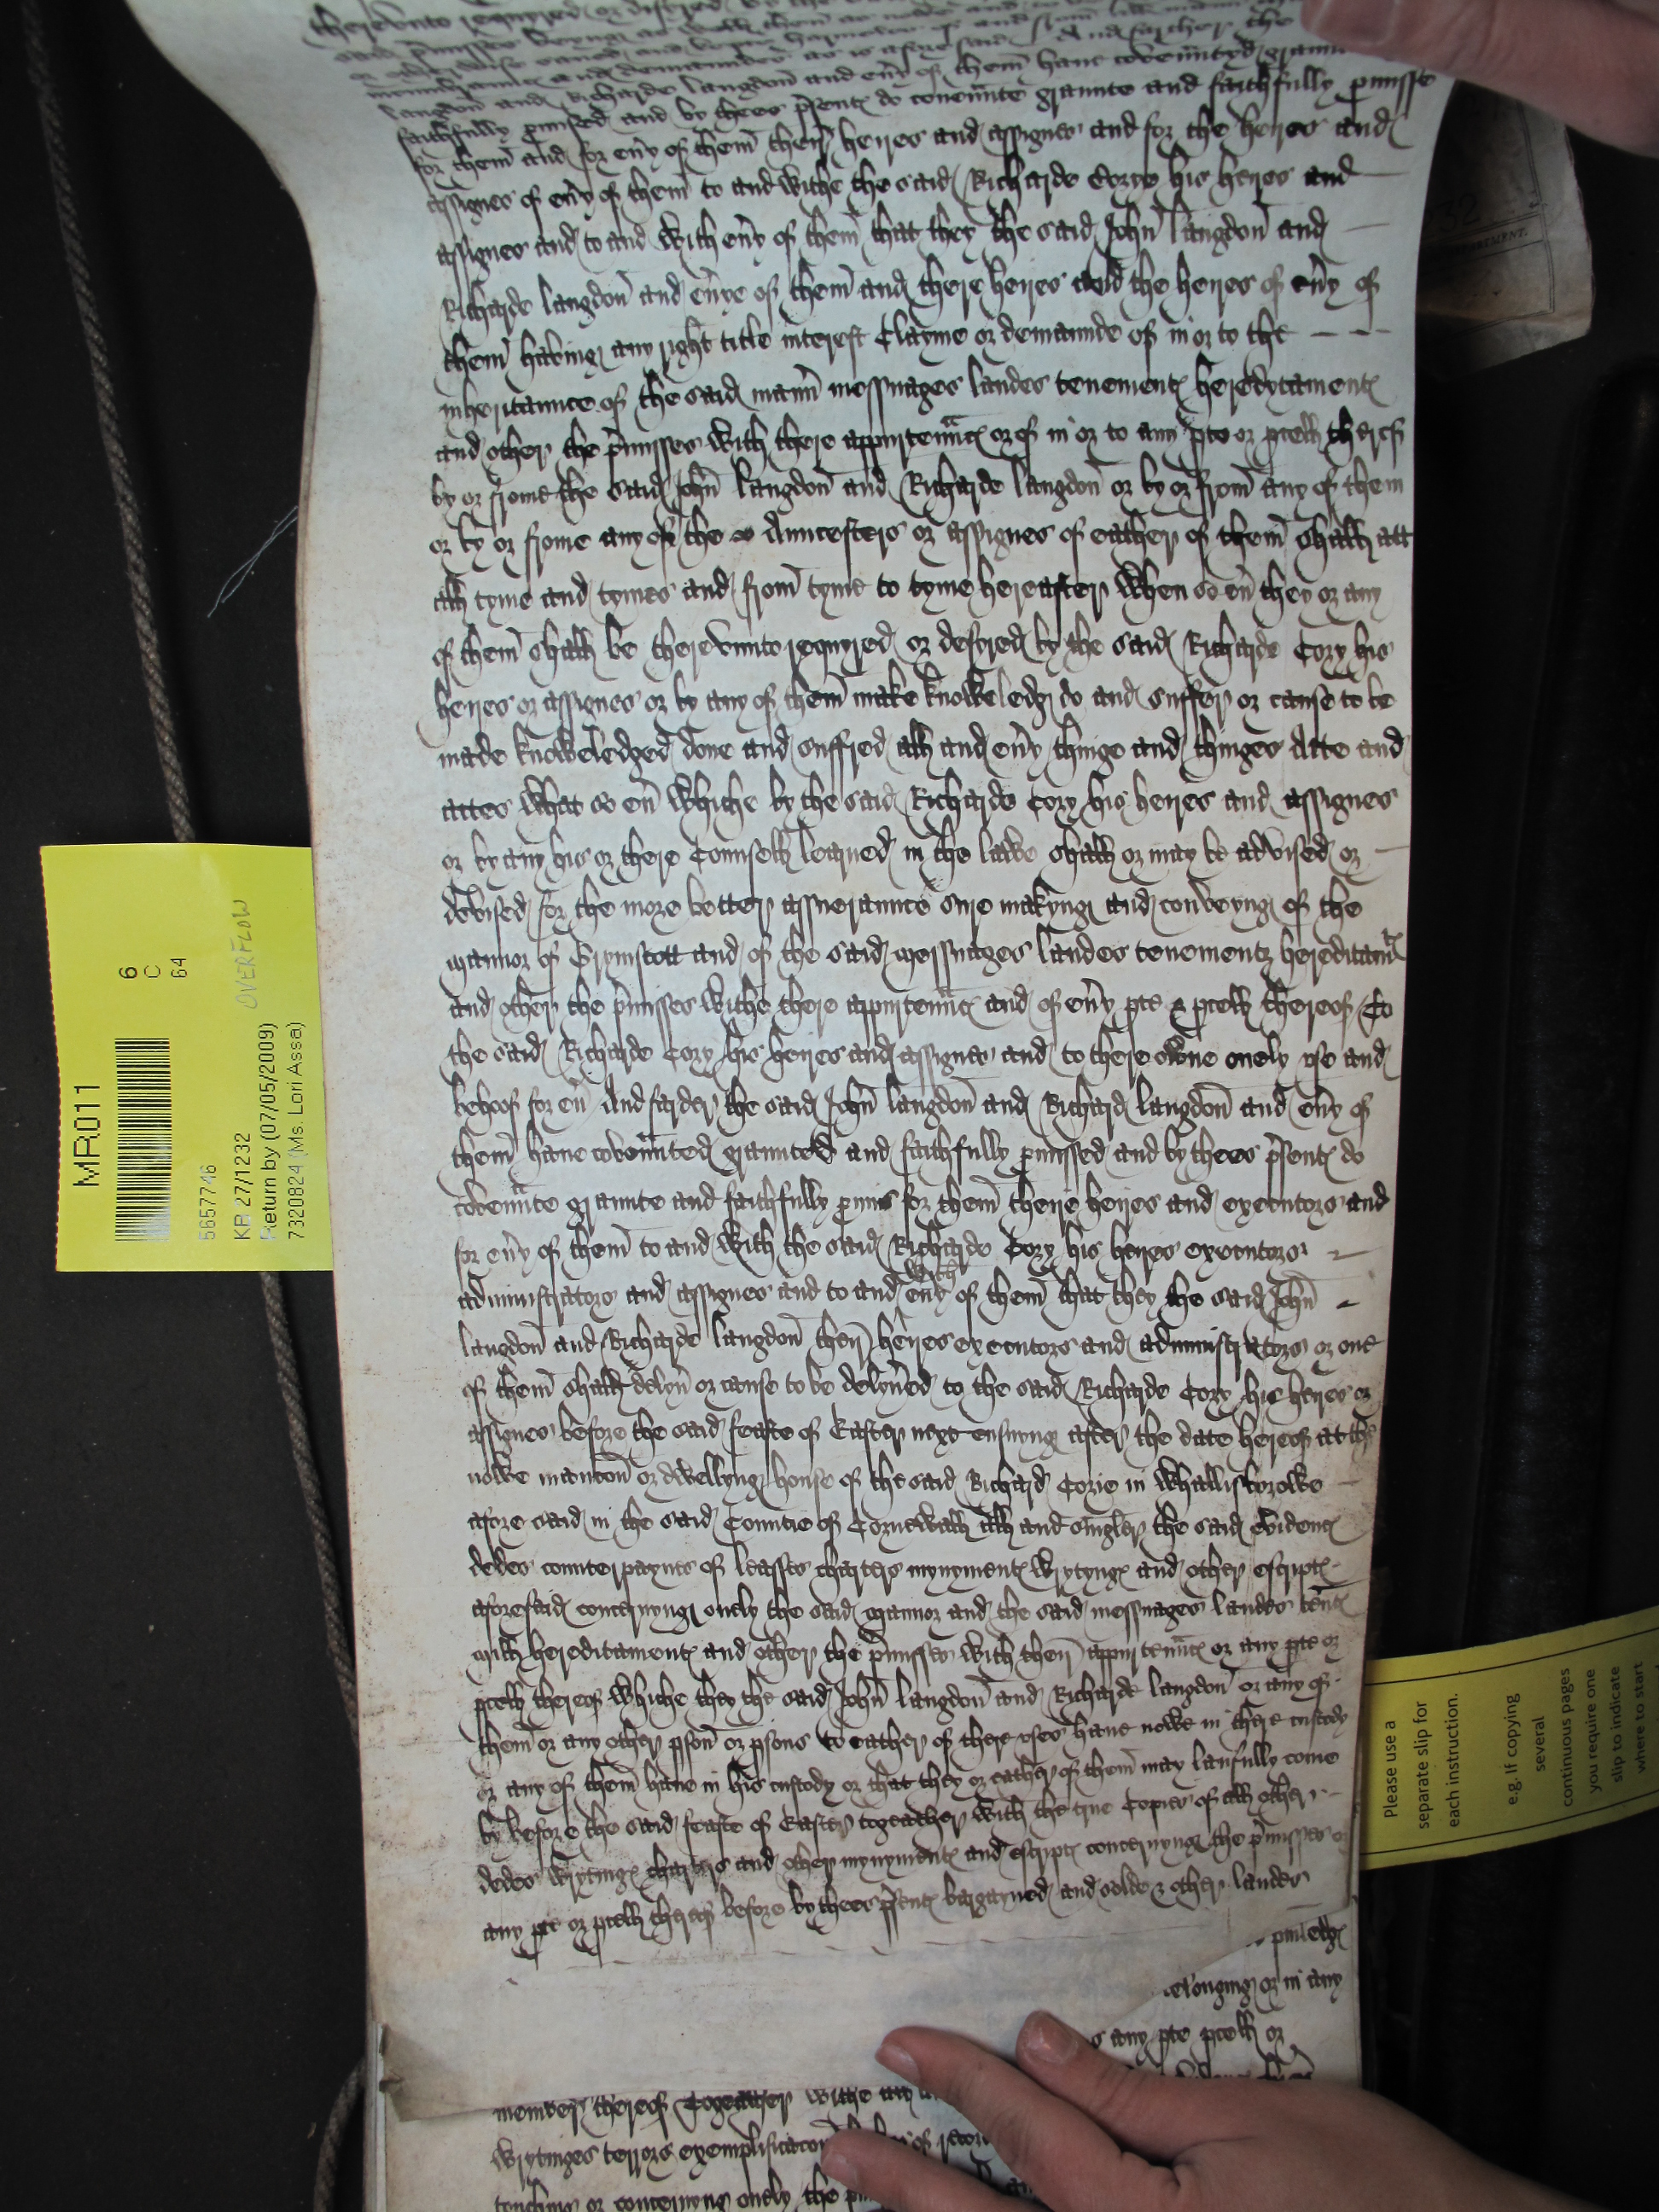 therevnto requyred or desired by the
said p'misses
or
incumbraunces and demaundes as is afore said And farther the
Langdon and Richarde Langdon and eu'y of them haue couenntyd graunt
faithfully p'mised and by thees p'sent do couennte graunte and faithfully p'misse
for them and for eu'y of them their heires and assignes and for the heires and
assignes of eu'y of them to and withe the said Richarde Corye his heires and
assignes and to and with eu'y of them that they the said John Langdon and
Richarde Langdon and eu'ye of them and there heires and the heires of eu'y of
them having any right title interest Clayme or demaunde of in or to the
inheritaunce of the said mann' messuages landes tenement heredytament
and other the p'misses with there appurtennc or of in or to any pte or pcell therof
by or frome the said John Langdon and Richarde Langdon or by or from any of them
or by or frome any of the Auncesters or assignes of eather of them shall att
all tyme and tymes and from tyme to tyme hereafter when so eu' they or any
of them shall be therevnto requyred or desyred by the said Richarde Cory his
heires or assignes or by any of them make knowledg do and suffer or cause to be
made knowledged done and suffred all and eu'y thinge and thinges Acte and
actes what so eu' whiche by the said Richarde Cory his heires and assignes
or by any his or there Counsell learned in the lawe shall or may be advised or
devised for the more better assueraunce sure makyng and conveyng of the
mannor of Grymscott and of the said messuages landes tenementz hereditam
and other the p'misses withe there appurtennc and of eu'y pte & pcell thereof To
the said Richarde Cory his heires and assignes and to there owne onely vse and
behoof for eu' And farder the said John Langdon and Richard Langdon and eu'y of
them haue covennted graunted and faithfully p'missed and by thees p'sent do
covennte graunte and faithfully p'mis for them theire heires and executors and
for eu'y of them to and with the said Richarde Cory his heires executors
administrators and assignes and to and with eu'y of them that they the said John
Langdon and Richarde Langdon their heires executors and administrators or one
of them shall delyu' or cause to be delyu'ed to the said Richarde Cory his heires or
assignes before the said feaste of Easter next ensuyng after the date hereof at the
nowe mancon or dwellyng house of the said Richard Corie in Whallisborowe
afore said in the said Countie of Cornewall all and singler the said evidenc
dedes counterpaynes of leasses charters mynyment wrytyng and other escript
aforesaid concernyng onely the said mannor and the said messuages landes ten't
mill hereditament and other the p'misses with their appurtennc or any pte or
pcell thereof whiche they the said John Langdon and Richarde Langdon or any of
them or any other pson or psons to eather of there vses haue nowe in there custody
or any of them haue in his custody or that they or eather of them may laufully come
by before the said feaste of Easter togeather with the true Copies of all other
dedes wryting charters and other mynyment and escript concernyng the p'misses or
any pte or pcell therof before by thees p'sent bargayned and solde & other landes
belonging or in any
any pte pcell or
member thereof Togeather withe
wrytinges terrors exemplificacon of recor
touching or concernyng onely the
MR011
6
C
64
5657746
KB 27/1232 OVERFLOW
Return by (07/05/2009)
7320824 (Ms. Lori Assa)
Please use a
separate slip for
each instruction.
e.g. If copying
several
continuous pages
you require one
slip to indicate
where to start